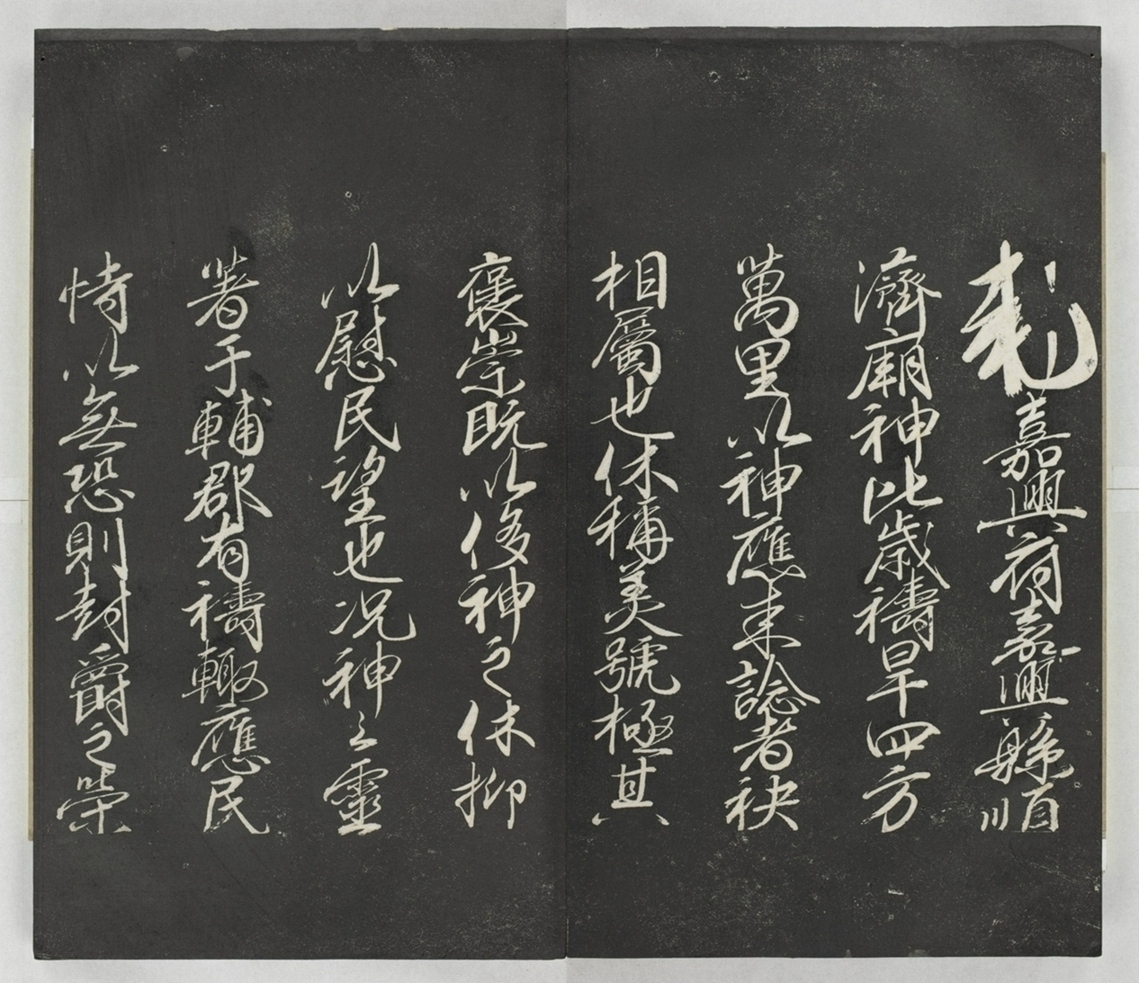 敕嘉興府嘉興縣順
濟廟神比歲禱旱四方
萬里以神應来諗者袂
相屬也休稱美號極其
褒崇既以侈神之休抑
以慰民望也况神之靈
著于輔郡有禱輙應民
恃以無恐則封爵之榮